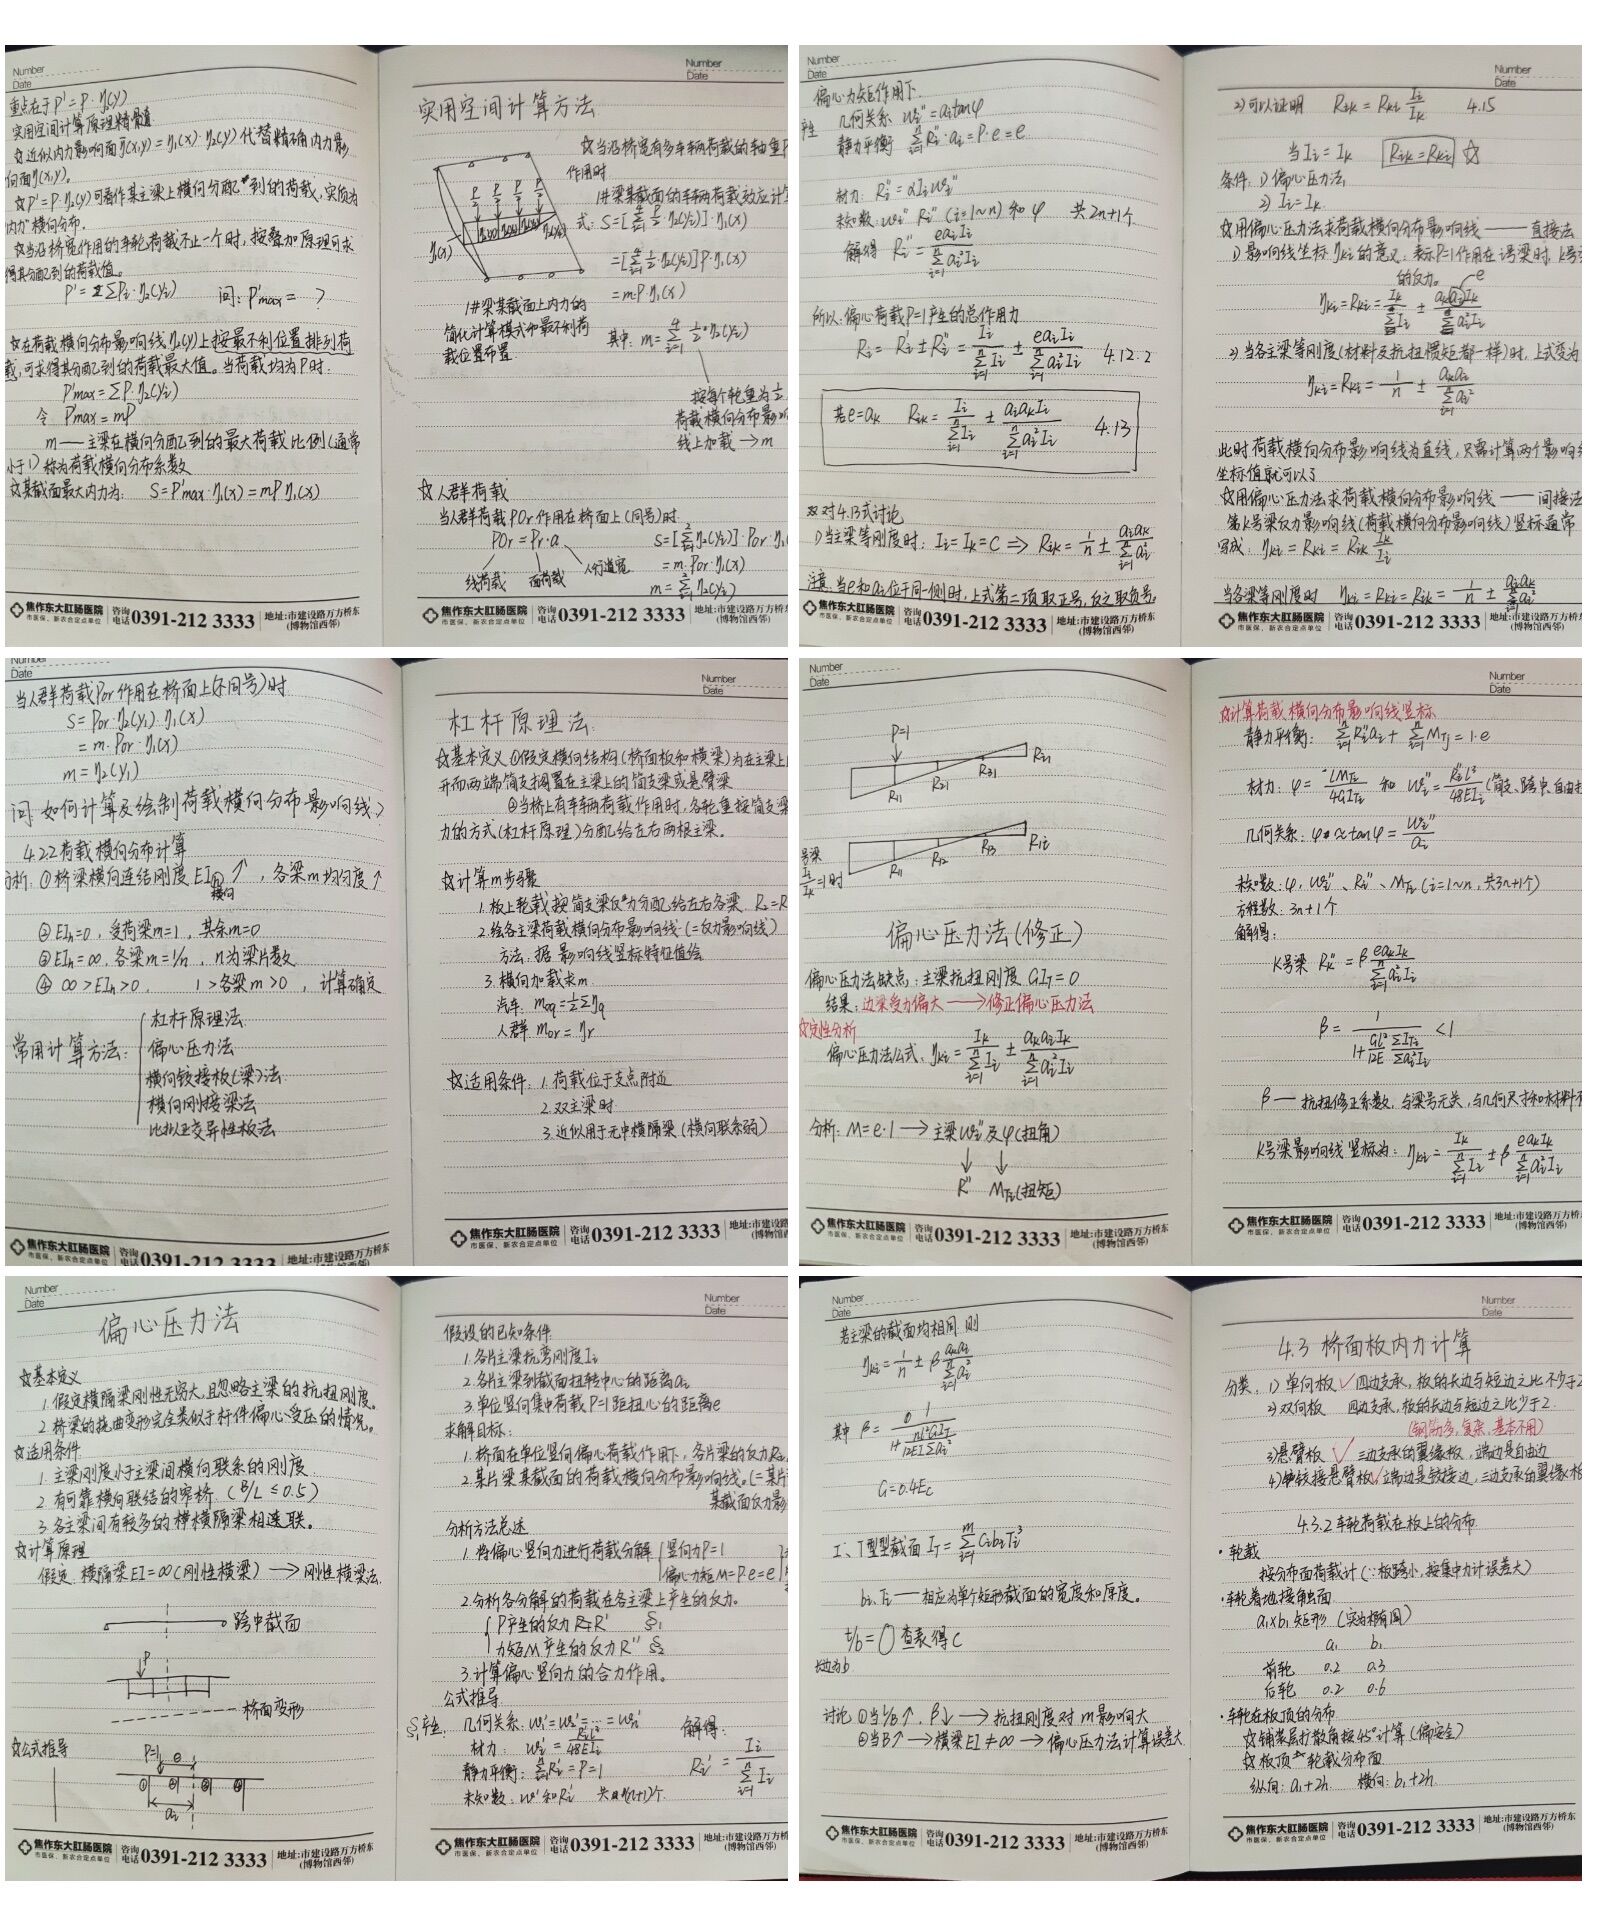 Number
Date
重点在于 P' = P·η(y)
实用空间计算原理精髓
☆近似内力影响面η(x,y) = η₁(x)·η₂(y)代替精确内力影
向面η(x,y)。
☆P' = P·η₂(y)可看作某主梁上横向分配到的荷载,实质为
内力横向分布。
☆当沿桥宽作用的车轮荷载不止一个时,按叠加原理可求
得其分配到的荷载值。
P' = ΣPi·η₂(yi) 问: P'max = ?
☆在荷载横向分布影响线η₂(y)上按最不利位置排列荷
载,可求得其分配到的荷载最大值。当荷载均为P时.
P'max = ΣP·η₂(yi)
令 P'max = mP
m — 主梁在横向分配到的最大荷载比例(通常
小于1)称为荷载横向分布系数
☆某截面最大内力为: S = P'max·η₁(x) = mPη₁(x)
焦作东大肛肠医院 咨询电话 0391-212 3333 地址:市建设路万方桥东
市医保、新农合定点单位 (博物馆西邻)
Number
Date
实用空间计算方法
☆当沿桥宽有多车辆荷载的轴重P
作用时
1#梁某截面的车辆荷载效应计算
式: S = [Σ P/2·η₂(yi)]·η₁(x)
= [Σ ½·η₂(yi)]P·η₁(x)
= m·P·η₁(x)
η₁(x)
1#梁某截面上内力的
简化计算模式和最不利荷
载位置布置
其中: m = Σ ½·η₂(yi)
按每个轮重为½
荷载横向分布影响
线上加载 → m
☆人群荷载
当人群荷载P0r作用在桥面上(同号)时
P0r = Pr·a
线荷载 面荷载 人行道宽
S = [Ση₂(yi)]·P0r·η₁
= m·P0r·η₁(x)
m = Ση₂(yi)
焦作东大肛肠医院 咨询电话 0391-212 3333 地址:市建设路万方桥东
市医保、新农合定点单位 (博物馆西邻)
Number
Date
偏心力矩作用下
产生 几何关系 wi'' = ai tanφ
静力平衡 ΣRi''·ai = P·e = e
材力: Ri'' = αIiwi''
未知数: wi'' Ri'' (i=1~n) 和 φ 共2n+1个
解得 Ri'' = eaiIi / Σai²Ii
所以: 偏心荷载P=1产生的总作用力
Ri = Ri' ± Ri'' = Ii/ΣIi ± eaiIi/Σai²Ii 4.12.2
若e=ak Rik = Ii/ΣIi ± aiakIi/Σai²Ii 4.13
对4.13式讨论
1)当主梁等刚度时: Ii=Ik=C ⇒ Rik = 1/n ± aiak/Σai²
注意:当e和ai位于同一侧时,上式第二项取正号,反之取负号。
焦作东大肛肠医院 咨询电话 0391-212 3333 地址:市建设路万方桥东
市医保、新农合定点单位 (博物馆西邻)
Number
Date
2)可以证明 Rik = Rki Ii/Ik 4.15
当Ii=Ik Rik=Rki ☆
条件: 1) 偏心压力法
2) Ii=Ik
☆用偏心压力法求荷载横向分布影响线 —— 直接法
1)影响线坐标ηki的意义: 表示P=1作用在i号梁时,k号
的反力。 e
ηki = Rki = Ik/ΣIi ± akaiIk/Σai²Ii
2)当各主梁等刚度(材料及抗扭惯矩都一样)时,上式变为
ηki = Rki = 1/n ± akai/Σai²
此时荷载横向分布影响线为直线,只需计算两个影响线
坐标值就可以了
☆用偏心压力法求荷载横向分布影响线 —— 间接法
第k号梁反力影响线(荷载横向分布影响线)竖标通常
写成: ηki = Rki = Rik Ik/Ii
当各梁等刚度时 ηki = Rki = Rik = 1/n ± aiak/Σai²
焦作东大肛肠医院 咨询电话 0391-212 3333 地址:市建设路万方桥东
市医保、新农合定点单位 (博物馆西邻)
Number
当人群荷载P0r作用在桥面上(不同号)时
S = P0r·η₂(y₁)·η₁(x)
= m·P0r·η₁(x)
m = η₂(y₁)
问: 如何计算及绘制荷载横向分布影响线?
4.2.2荷载横向分布计算
分析: ①桥梁横向连结刚度EIh↑, 各梁m均匀度↑
横向
②EIh=0, 受荷梁m=1, 其余m=0
③EIh=∞, 各梁m=1/n, n为梁片数
④ ∞>EIh>0, 1>各梁m>0, 计算确定
常用计算方法:
杠杆原理法
偏心压力法
横向铰接板(梁)法
横向刚接梁法
比拟正交异性板法
焦作东大肛肠医院 咨询电话 0391-212 3333 地址:市建设路万方桥东
市医保、新农合定点单位 (博物馆西邻)
Number
Date
杠杆原理法
☆基本定义 ①假定横向结构(桥面板和横梁)为在主梁上
开而两端简支搁置在主梁上的简支梁或悬臂梁
②当桥上有车辆荷载作用时,各轮重按简支梁
力的方式(杠杆原理)分配给左右两根主梁。
☆计算m步骤
1.板上轮载按简支梁反力分配给左右各梁 Ri=R
2.绘各主梁荷载横向分布影响线(=反力影响线)
方法: 据影响线竖标特征值绘
3.横向加载求m.
汽车: m0q = ½Σηq
人群: m0r = ηr
☆适用条件: 1.荷载位于支点附近
2.双主梁时
3.近似用于无中横隔梁(横向联系弱)
焦作东大肛肠医院 咨询电话 0391-212 3333 地址:市建设路
市医保、新农合定点单位 (博物馆西邻)
Number
Date
P=1
R11 R21 R31 Ri1
号梁
Ii/Ik=1时
R11 R12 R13 R1i
偏心压力法(修正)
偏心压力法缺点: 主梁抗扭刚度 GIT=0
结果: 边梁受力偏大 → 修正偏心压力法
☆定性分析
偏心压力法公式: ηki = Ik/ΣIi ± akaiIk/Σai²Ii
分析: M=e·1 → 主梁wi''及φ(扭角)
↓ ↓
R'' MTi(扭矩)
焦作东大肛肠医院 咨询电话 0391-212 3333 地址:市建设路万方桥东
市医保、新农合定点单位 (博物馆西邻)
Number
Date
☆计算荷载横向分布影响线竖标
静力平衡: ΣRi''ai + ΣMTj = 1·e
材力: φ = LMTi/4GITi 和 wi'' = Ri''l³/48EIi (简支、跨中、自由扭
几何关系: φ≈tanφ = wi''/ai
未知数: φ, wi''、Ri''、MTi (i=1~n, 共3n+1个)
方程数: 3n+1个
解得:
K号梁 Rk'' = β eakIk/Σai²Ii
β = 1/(1+ Gl²/12E ΣITi/Σai²Ii) <1
β — 抗扭修正系数, 与梁号无关, 与几何尺寸和材料
K号梁影响线竖标为: ηki = Ik/ΣIi ± β eakIk/Σai²Ii
焦作东大肛肠医院 咨询电话 0391-212 3333 地址:市建设路万方
市医保、新农合定点单位 (博物馆西邻)
Number
Date
偏心压力法
☆基本定义
1.假定横隔梁刚性无穷大,且忽略主梁的抗扭刚度。
2.桥梁的挠曲变形完全类似于杆件偏心受压的情况。
☆适用条件
1.主梁刚度小于主梁间横向联系的刚度
2.有可靠横向联结的窄桥 (B/L ≤ 0.5)
3.各主梁间有较多的横隔梁相连联。
☆计算原理
假定 横隔梁EI=∞(刚性横梁) → 刚性横梁法
跨中截面
P
桥面变形
☆公式推导
P=1 e
① ② ③ ④
ai
焦作东大肛肠医院 咨询电话 0391-212 3333 地址:市建设路万方桥东
市医保、新农合定点单位 (博物馆西邻)
Number
Date
假设的已知条件
1.各片主梁抗弯刚度Ii
2.各片主梁到截面扭转中心的距离ai
3.单位竖向集中荷载P=1距扭心的距离e
求解目标:
1.桥面在单位竖向偏心荷载作用下,各片梁的反力Ri
2.某片梁某截面的荷载横向分布影响线。(=某片
某截面反力影
分析方法总述
1.将偏心竖向力进行荷载分解 竖向力P=1
偏心力矩M=P·e=e
2.分析各分解的荷载在各主梁上产生的反力。
P产生的反力 R' §1
力矩M产生的反力R'' §2
3.计算偏心竖向力的合力作用。
公式推导
§1产生 几何关系: w1'=w2'=…=wn'
材力: wi' = Ri'l³/48EIi
静力平衡: ΣRi'=P=1
未知数: w'和Ri' 共(n+1)个
解得:
Ri' = Ii/ΣIi
焦作东大肛肠医院 咨询电话 0391-212 3333 地址:市建设路万
市医保、新农合定点单位 (博物馆西邻)
Number
Date
若主梁的截面均相同, 则
ηki = 1/n ± β akai/Σai²
其中 β = 1/(1+ nl²GIT/12EIΣai²)
G=0.4Ec
工、T型型截面 IT = Σcibiti³
bi、ti — 相应为单个矩形截面的宽度和厚度。
t/b = ○ 查表得C
长边为b
讨论 ①当L/B↑, β↓ → 抗扭刚度对m影响大
②当B↑ → 横梁EI≠∞ → 偏心压力法计算误差大
焦作东大肛肠医院 咨询电话 0391-212 3333 地址:市建设路万方桥东
市医保、新农合定点单位 (博物馆西邻)
Number
Date
4.3 桥面板内力计算
分类: 1)单向板✓ 四边支承,板的长边与短边之比不少于2
2)双向板 四边支承,板的长边与短边之比少于2.
(钢筋多,复杂,基本不用)
3)悬臂板✓ 三边支承的翼缘板,端边是自由边
4)铰接悬臂板✓ 端边是铰接边,三边支承的翼缘板
4.3.2车轮荷载在板上的分布
·轮载
按分布面荷载计 (∵板跨小,按集中力计误差大)
·车轮着地接触面
a₁×b₁矩形 (实为椭圆)
a₁ b₁
前轮 0.2 0.3
后轮 0.2 0.6
·车轮在板顶的分布
☆铺装层扩散角按45°计算(偏安全)
☆板顶轮载分布面
纵向: a₁+2h 横向: b₁+2h
焦作东大肛肠医院 咨询电话 0391-212 3333 地址:市建设路万方桥东
市医保、新农合定点单位 (博物馆西邻)